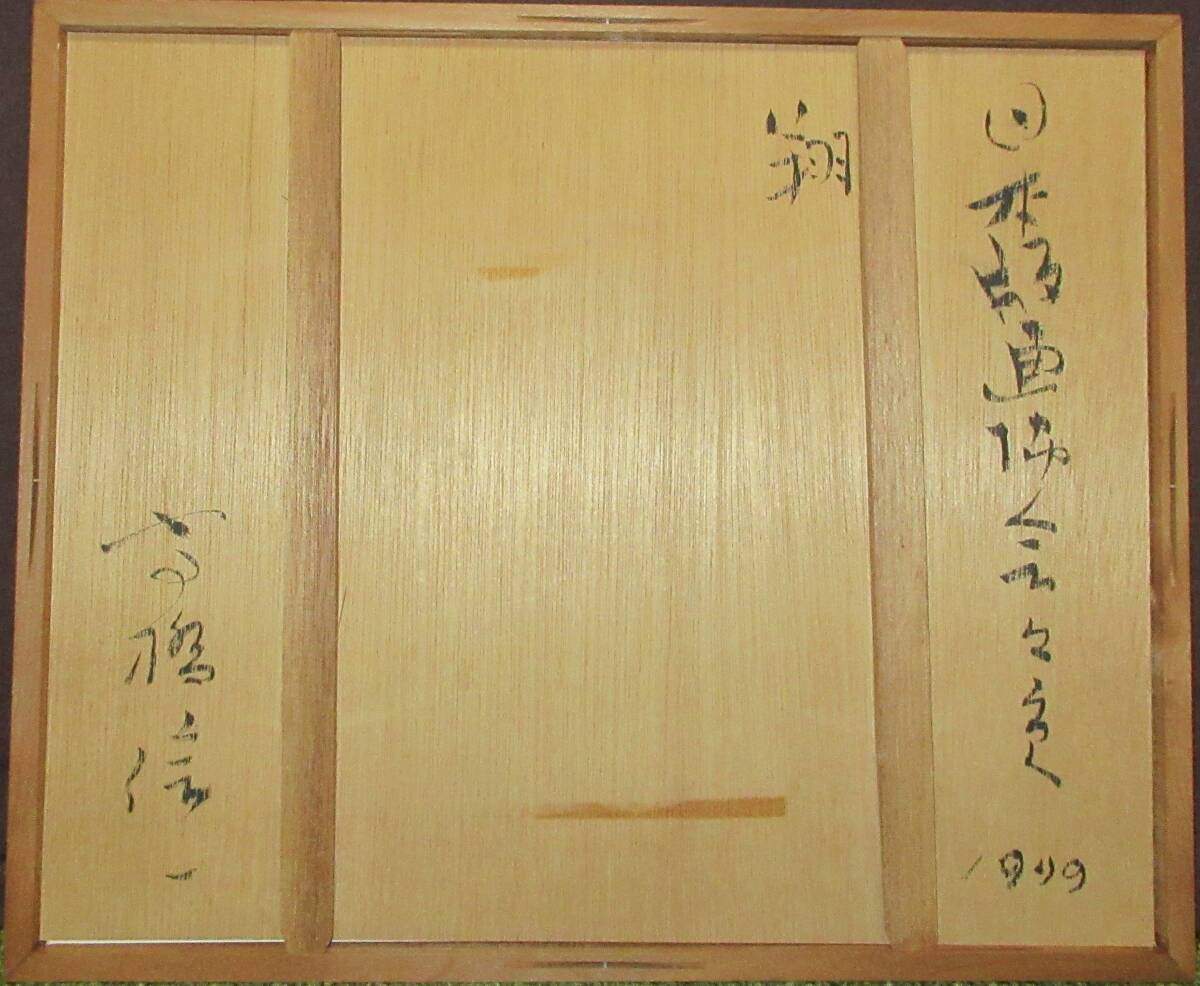 日本版画協会々員
1999
翔
高橋信一